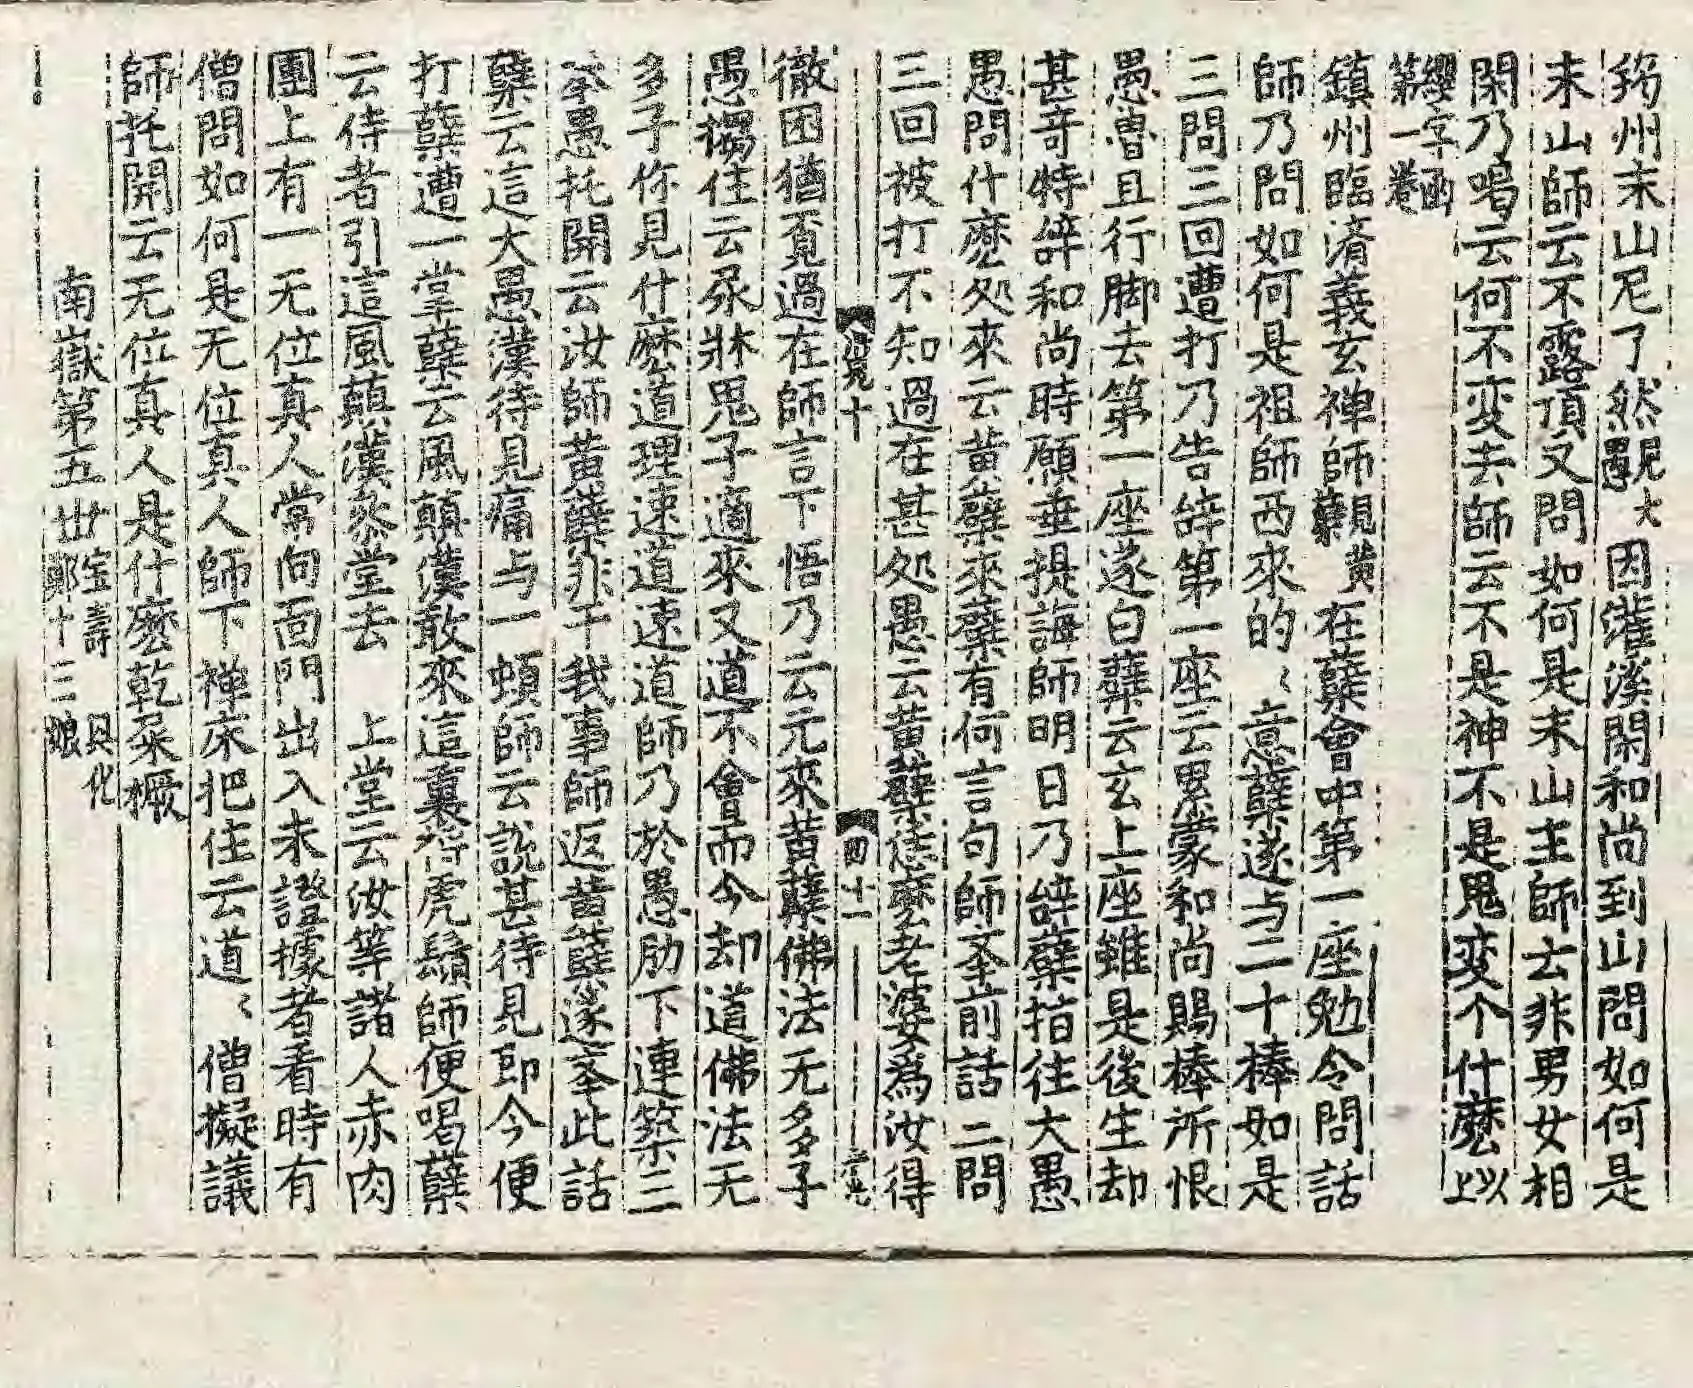 筠州末山尼了然覩大愚因灌溪閑和尚到山問如何是
末山師云不露頂又問如何是末山主師云非男女相
閑乃喝云何不変去師云不是神不是鬼変个什麽以上
纓字函第一卷
鎮州臨濟義玄禅師覲黃蘗在蘗會中第一座勉令問話
師乃問如何是祖師西來的〻意蘗遂与二十棒如是
三問三回遭打乃告辞第一座云累蒙和尚賜棒所恨
愚魯且行脚去第一座遂白蘗云玄上座雖是後生却
甚竒特辞和尚時願垂提誨師明日乃辞蘗指往大愚
愚問什麽処來云黃蘗來蘗有何言句師夲前話二問
三回被打不知過在甚処愚云黃蘗恁麽老婆爲汝得
十
四十一
徹困猶覔過在師言下悟乃云元來黃蘗佛法无多子
愚搊住云尿牀鬼子適來又道不會而今却道佛法无
多子你見什麽道理速道速道師乃於愚肋下連築三
拳愚托開云汝師黃蘗非干我事師返黃蘗遂夲此話
蘗云這大愚漢待見痛与一頓師云說甚待見即今便
打蘗遭一掌蘗云風顛漢敢來這裏捋虎鬚師便喝蘗
云侍者引這風顛漢叅堂去 上堂云汝等諸人赤肉
團上有一无位真人常向面門出入未證據者看時有
僧問如何是无位真人師下禅床把住云道〻僧擬議
師托開云无位真人是什麽乾屎橛
南嶽第五世宝壽 鄭十三娘